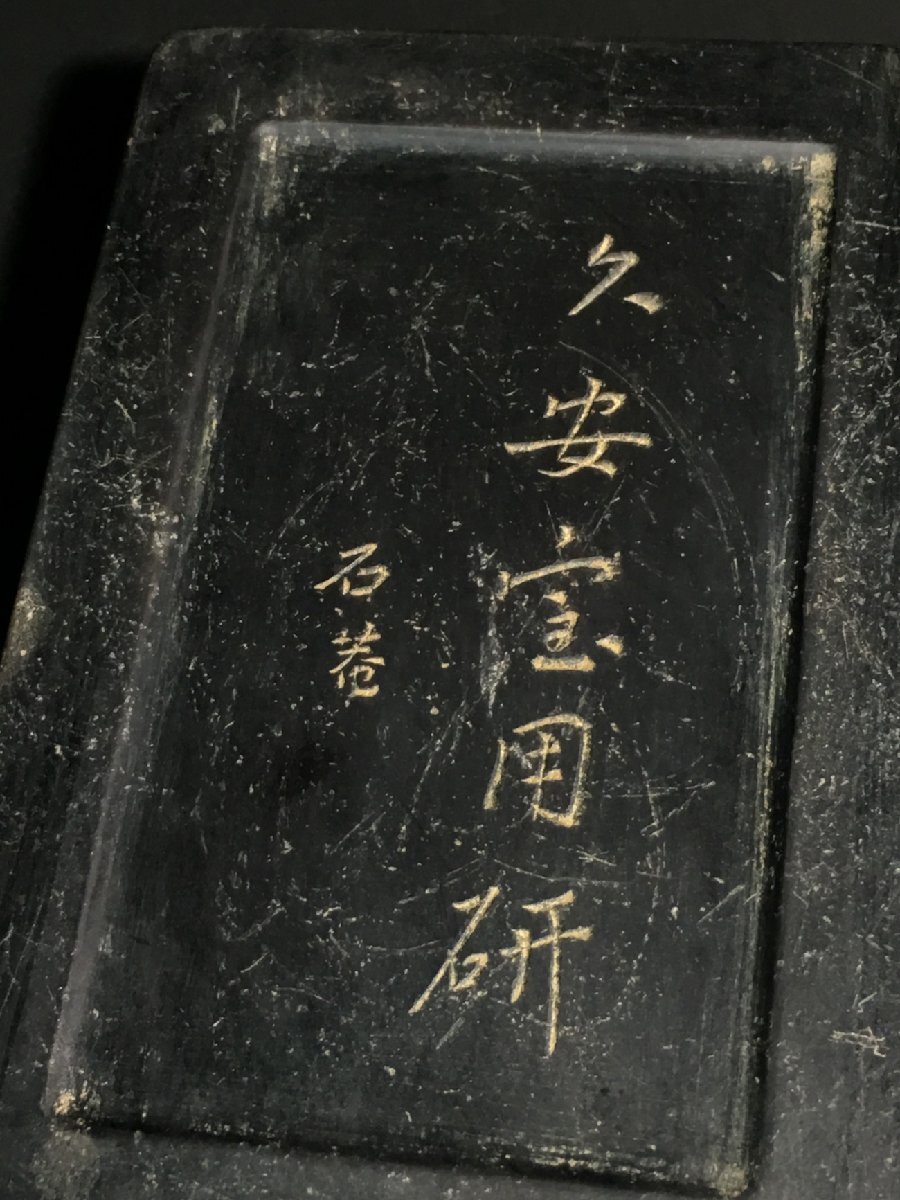 久安室用研
石菴